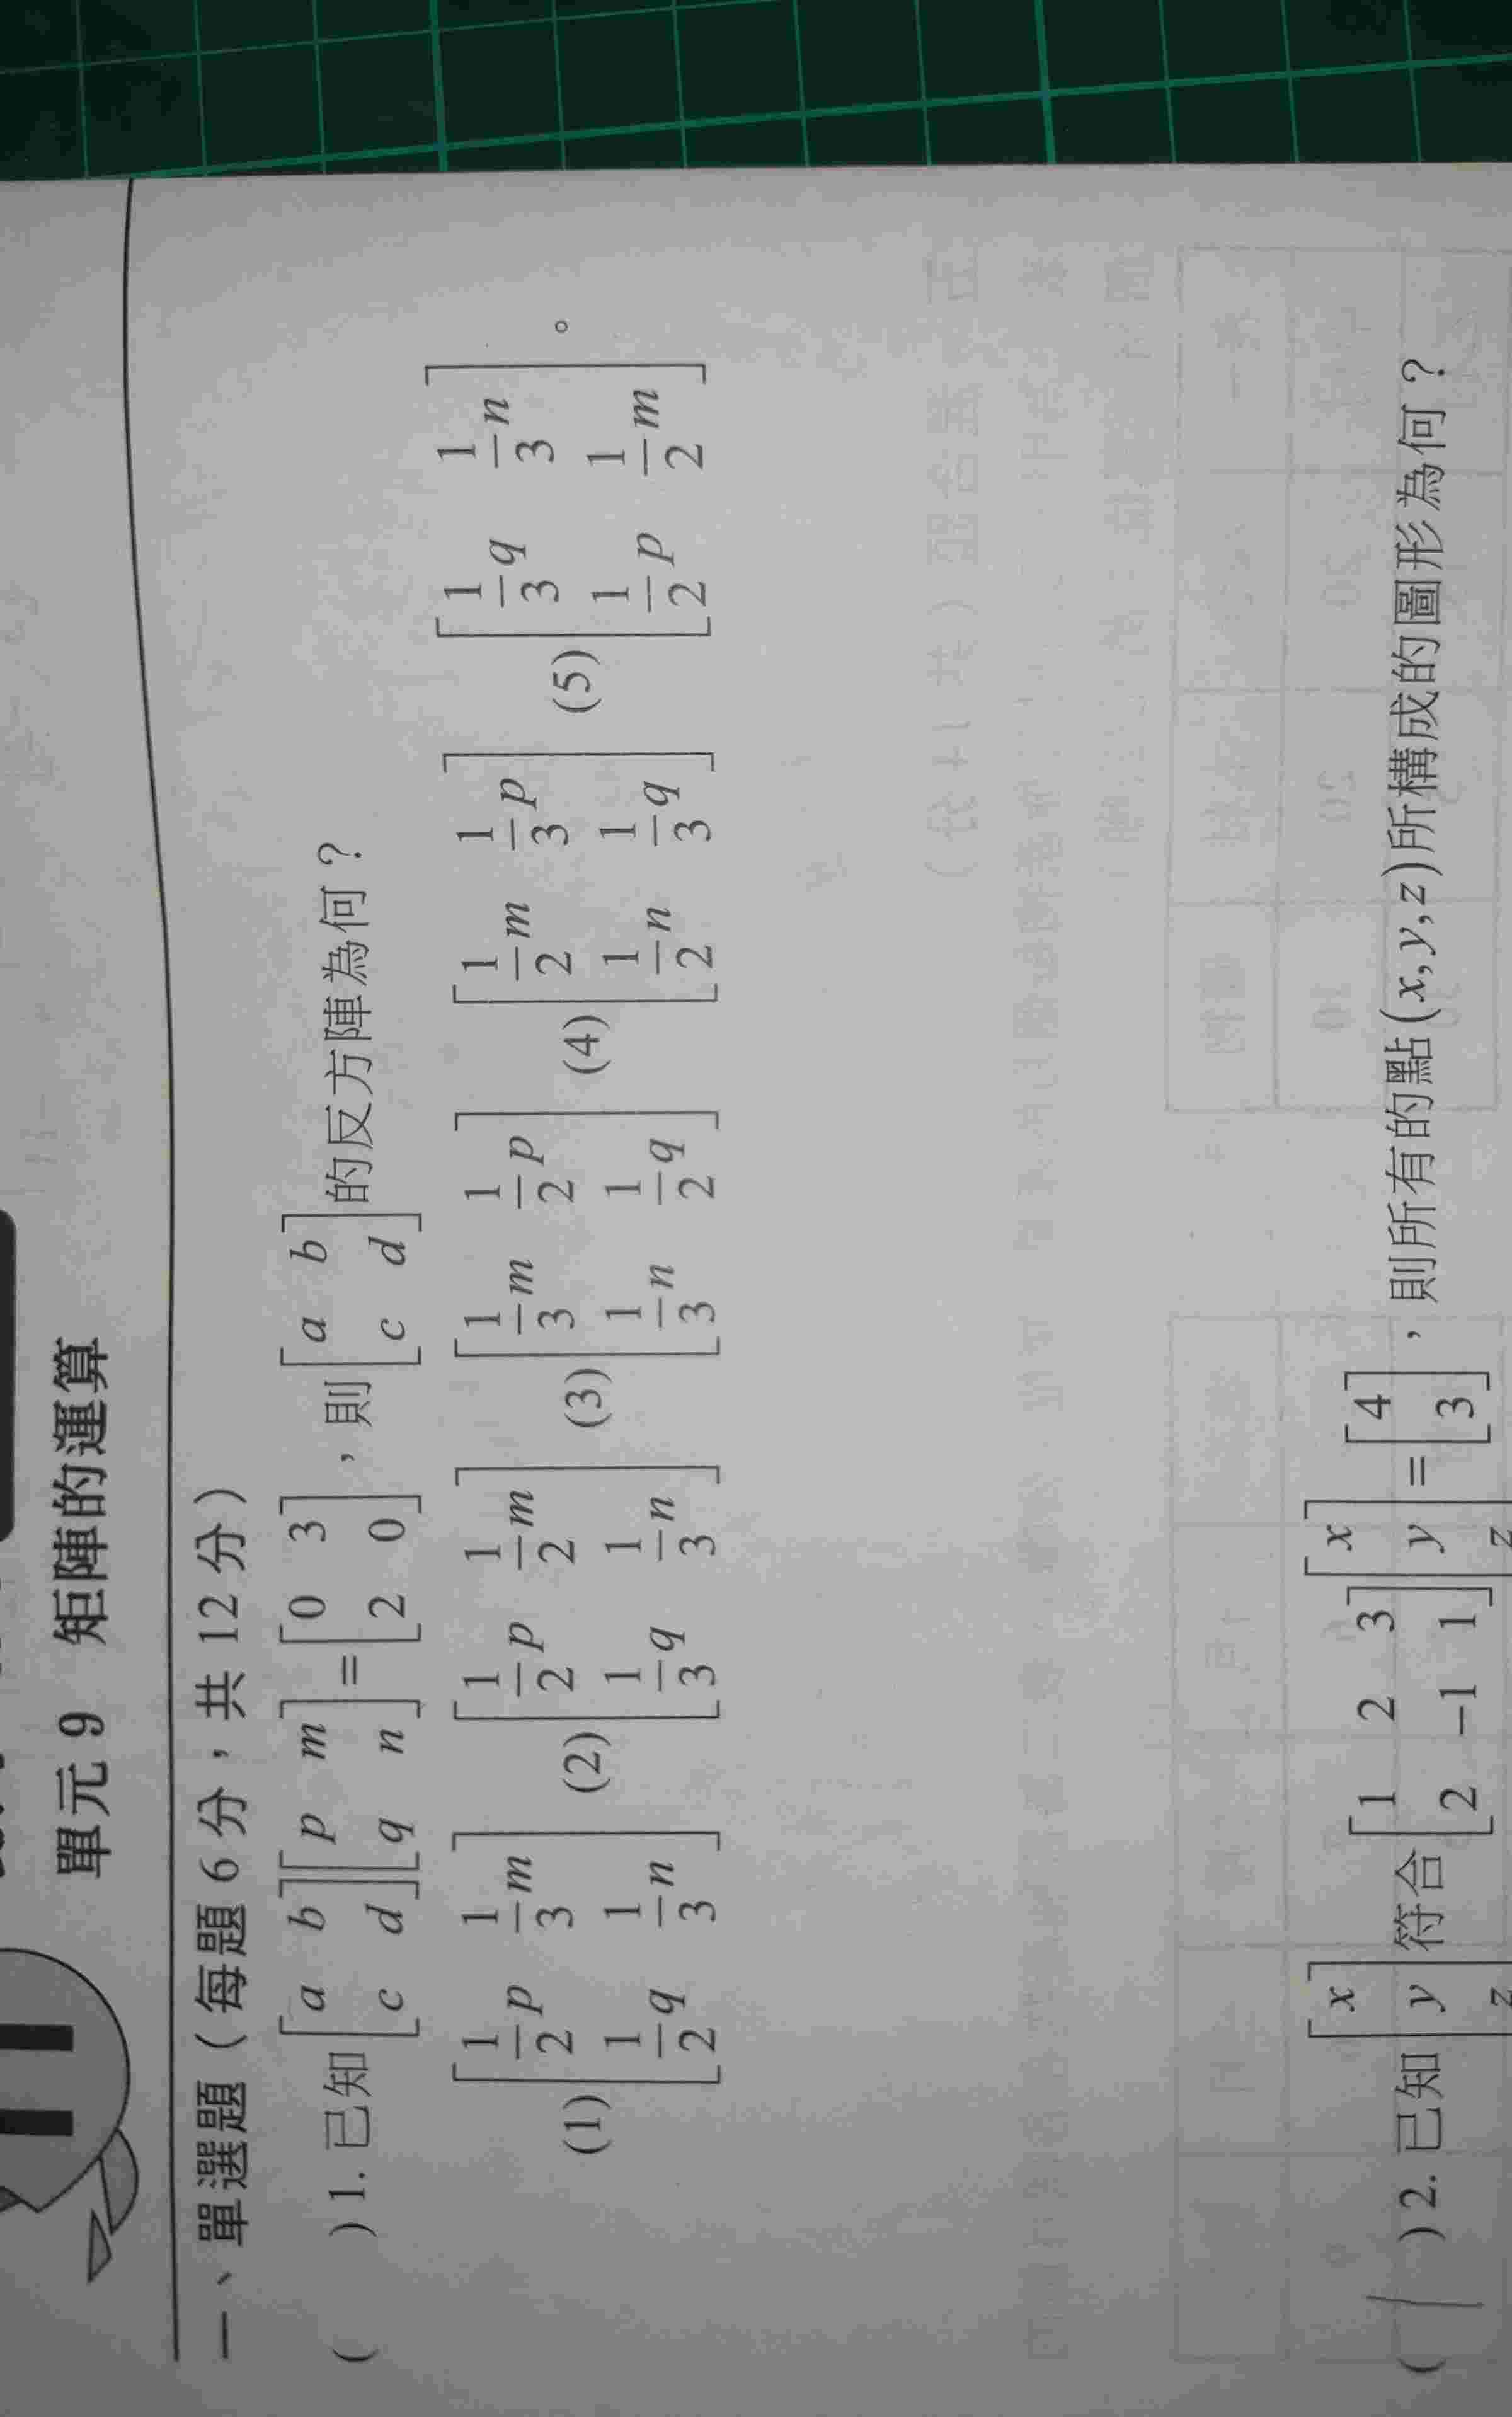 單元 9 矩陣的運算
一、單選題（每題 6 分，共 12 分）
( ) 1. 已知 [a b; c d][p m; q n] = [0 3; 2 0]，則 [a b; c d] 的反方陣為何？
(1) [1/2 p 1/3 m; 1/2 q 1/3 n] (2) [1/2 p 1/2 m; 1/3 q 1/3 n] (3) [1/3 m 1/2 p; 1/3 n 1/2 q] (4) [1/2 m 1/3 p; 1/2 n 1/3 q] (5) [1/3 q 1/3 n; 1/2 p 1/2 m]。
( ) 2. 已知 [x; y; z] 符合 [1 2 3; 2 −1 1][x; y; z] = [4; 3]，則所有的點(x, y, z)所構成的圖形為何？